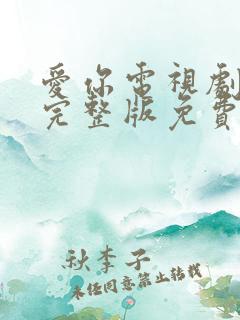 愛你電視劇
完整版免費
秋李子
未经同意禁止转载